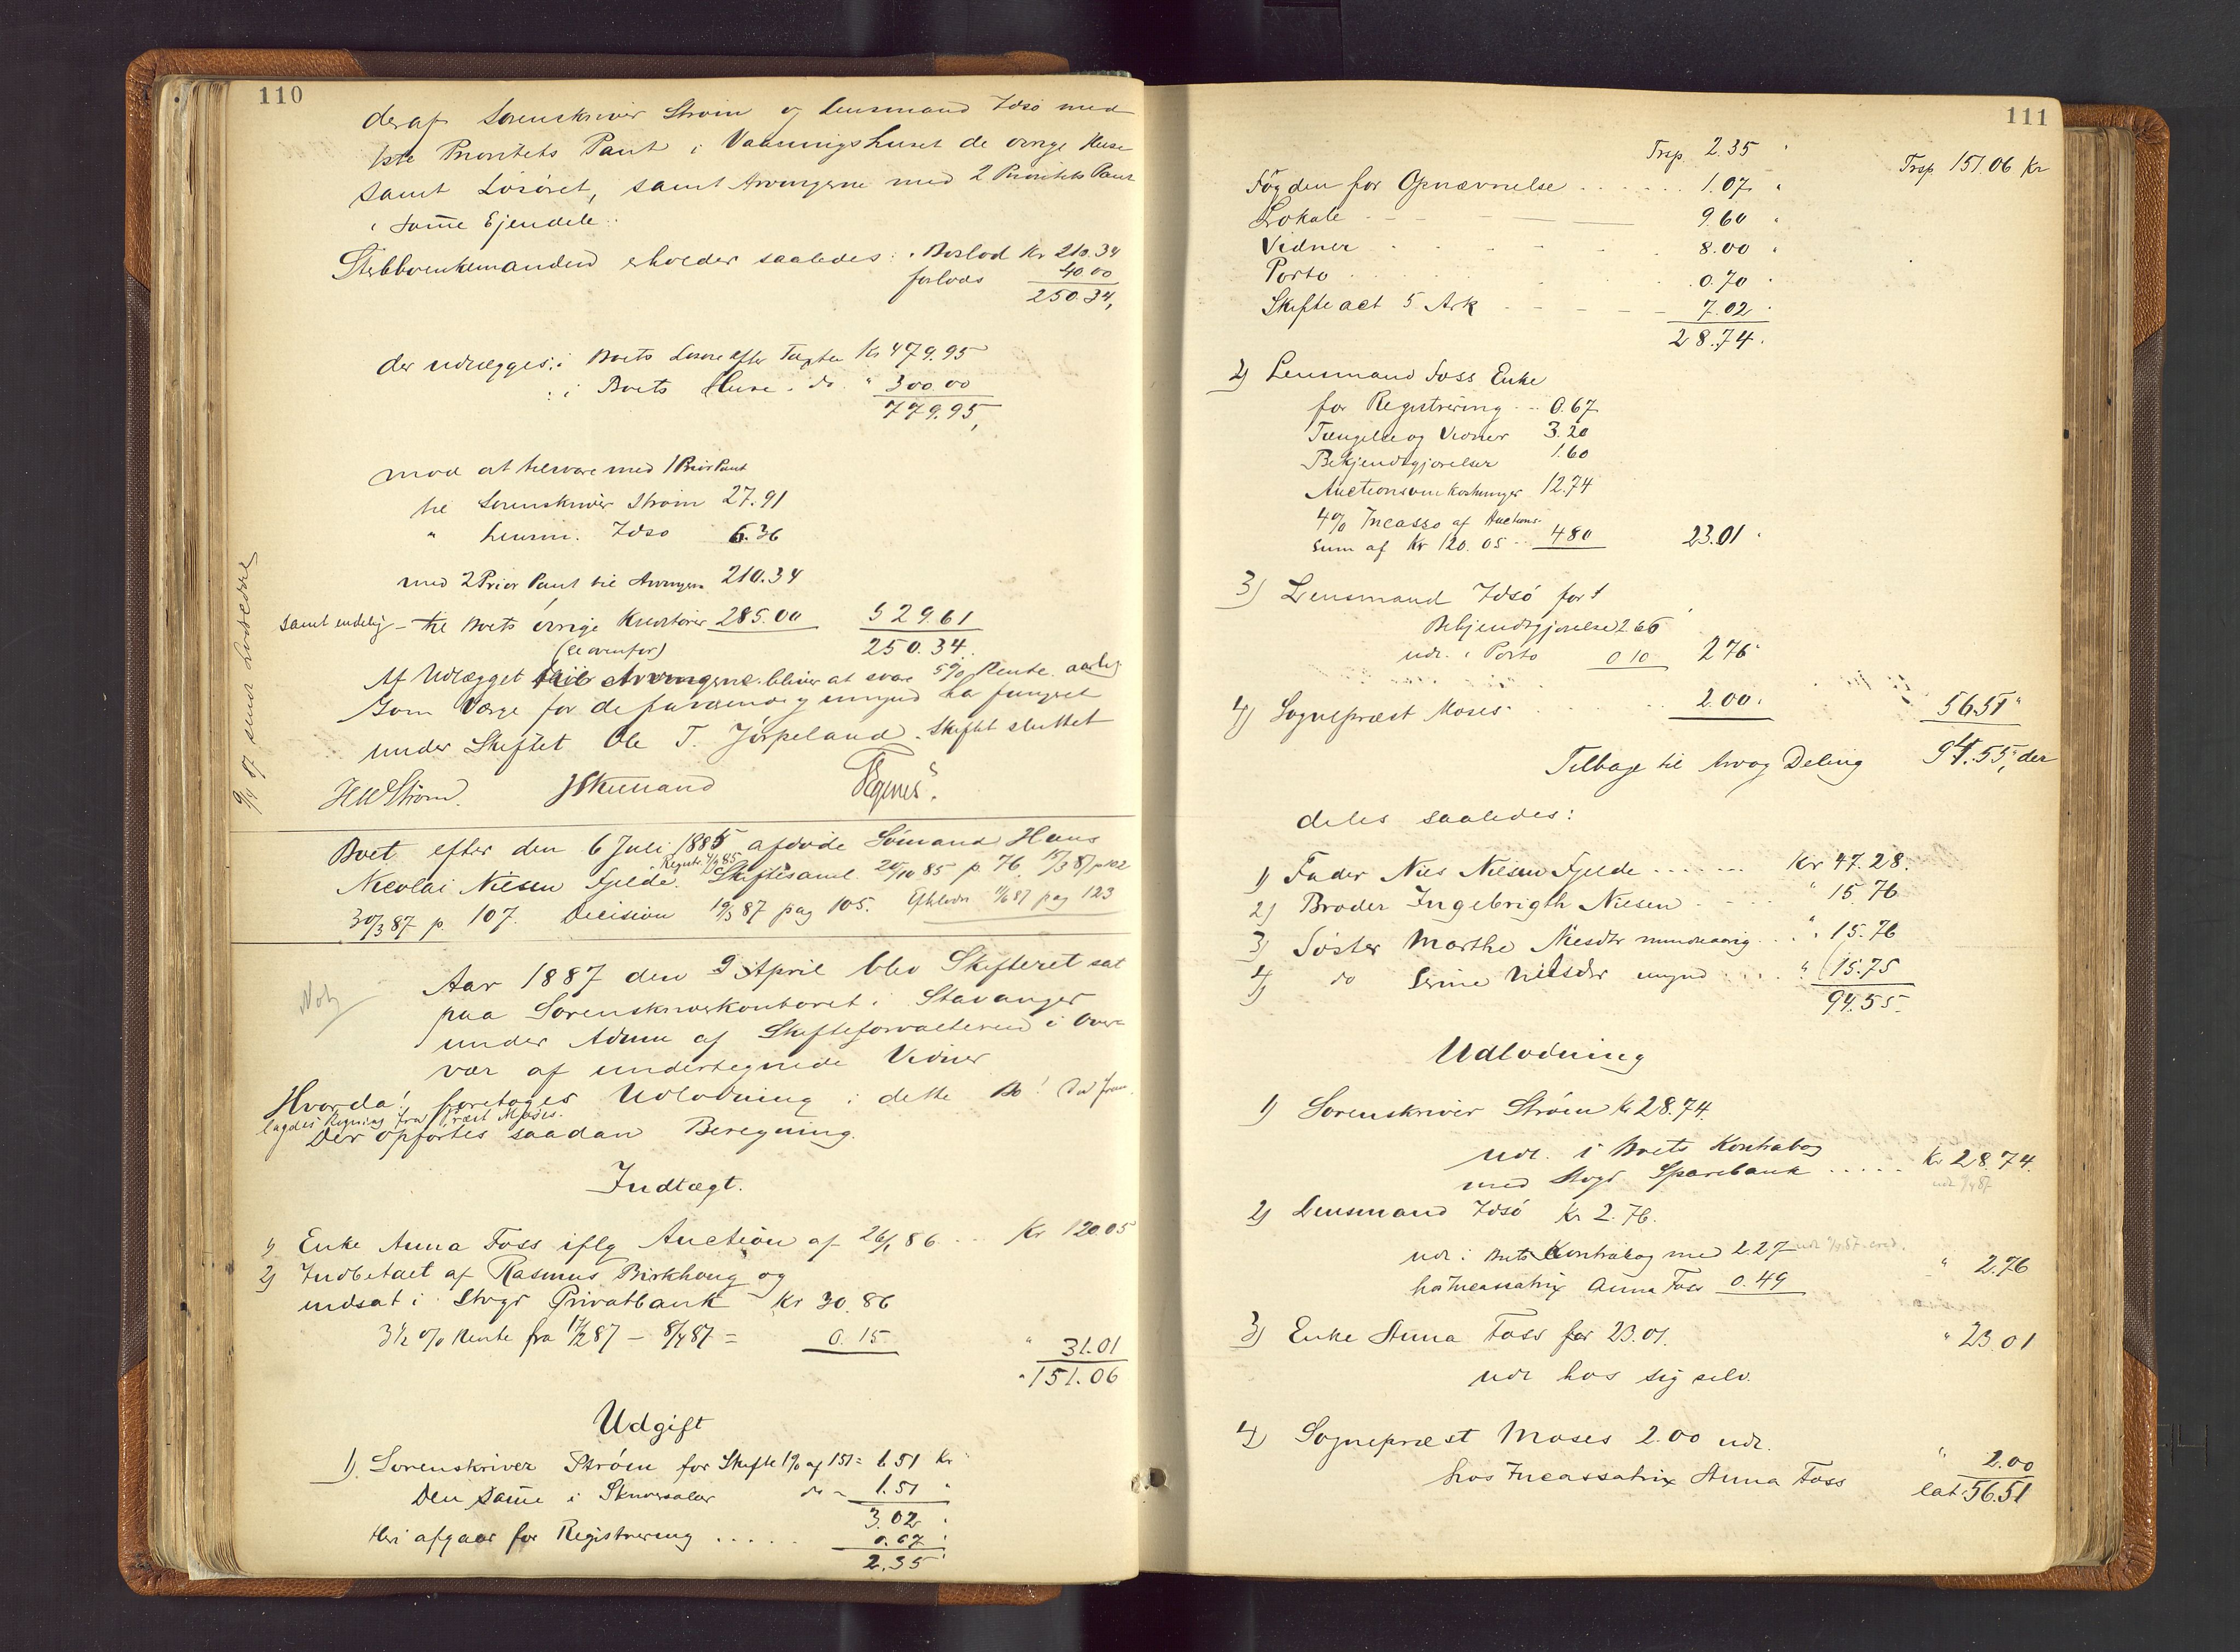 110
deraf Sorenskriver Strøm og Lensmand Idsø med
1ste Prioritets Pant i Vaaningshuset de øvrige Huse
samt Løsøret, samt Arvingerne med 2 Prioritets Pant
i samme Ejendele.
erholder saaledes: Boslod Kr 210.34
forlods 40.00
250.34,
der udlægges: i Boets Løsøre efter Taxten Kr 479.95
: i Boets Huse . do. " 300.00
779.95,
mod at tilsvare med 1 Prior Pant
til Sorenskriver Strøm 27.91
" Lensm. Idsø 6.36
med 2 Prior Pant til Arvingerne 210.34
samt endelig - til Boets øvrige Kreditorer 285.00 529.61
(se ovenfor) 250.34.
Af Udlægget til Arvingerne bliver at svare 5% Rente aarlig
Som Værge for de og umynd har fungeret
under Skiftet Ole T. Jørpeland. Skiftet sluttet
HWStrøm.
Boet efter den 6 Juli 1885 afdøde Sømand Hans
Registr. 4/8 85
Nicolai Nilsen Fjelde. Skiftesaml. 24/10 85 p. 76, 15/3 87 p 102
30/3 87 p. 107. Decision 19/3 87 pag 105. 11/6 87 pag 123
Aar 1887 den 9 April blev Skifteret sat
paa Sorenskriverkontoret i Stavanger
under Adm af Skifteforvalteren i Over-
vær af undertegnede Vidner
Hvorda! foretoges Udlodning i dette Bo! Der frem-
lagdes Regning fra Præst Moses.
Der opførtes saadan Beregning.
Indtægt.
1) Enke Anna Foss iflg Auction af 26/1 86 ... Kr 120.05
2) Indbetalt af Rasmus Birkhaug og
indsat i Stvgr Privatbank Kr 30.86
3½ % Rente fra 17/2 87 - 8/4 87 = 0.15 " 31.01
" 151.06
Udgift
1). Sorenskriver Strøm for Skifte 1% af 151 = 1.51 Kr
Den samme i Skriversalær do - 1.51 "
3.02 "
Heri afgaar for Registrering ..... 0.67
2.35
111
Trsp. 2.35 " Trsp 151.06 Kr
Fogden for Opnævnelse ...... 1.07 "
Lokale 9.60 "
Vidner 8.00 "
Porto 0.70 "
Skifteact 5 Ark 7.02 "
28.74.
2) Lensmand Foss Enke
for Registrering ... 0.67
og Vidner 3.20
Bekjendtgjørelser 1.60
Auctionsomkostninger 12.74
4% Incasso af Auctions-
sum af Kr 120.05 ... 4 80 23.01 "
3) Lensmand Idsø for 1
Bekjendtgjørelse 2 66
udl. i Porto 0 10 2 76 "
4) Sogneprest Moses 2.00 " 56.51 "
Tilbage til Arv og Deling 94.55, der
deles saaledes:
1) Fader Nils Nilsen Fjelde ....... Kr 47.28.
2) Broder Ingebrigth Nilsen " 15.76
3) Søster Marthe Nilsdtr mindreaarig ... " 15.76
4) do Serine Nilsdtr umynd .... " 15.75
94.55.
Udlodning
1) Sorenskriver Strøm Kr 28.74.
udl. i Boets Kontrabog
med Stvgr Sparebank ..... Kr 28.74.
2) Lensmand Idsø Kr 2.76.
udl. i Boets Kontrabog med 2.27
hos Incassatrix Anna Foss 0.49 " 2.76
3) Enke Anna Foss for 23.01. " 23.01
udl hos sig selv.
4) Sogneprest Moses 2.00 udl.
hos Incassatrix Anna Foss " 2.00
lat. 56.51